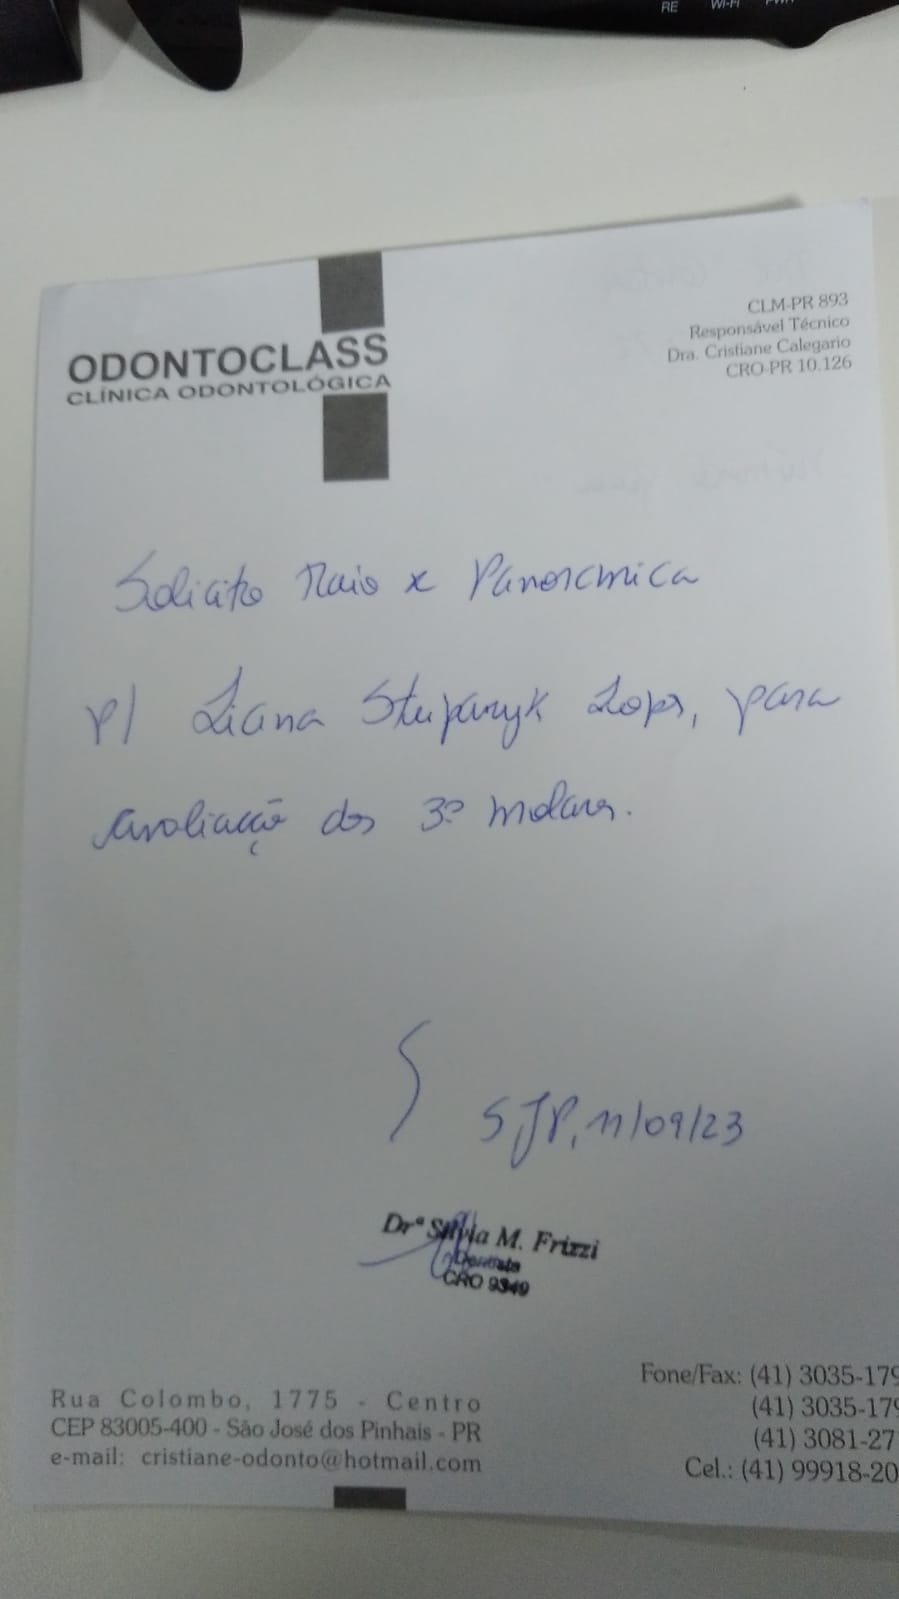 RE WI-FI
ODONTOCLASS
CLÍNICA ODONTOLÓGICA
CLM-PR 893
Responsável Técnico
Dra. Cristiane Calegario
CRO-PR 10.126
Solicito Raio x Panorâmica
p/ Liana Stuparyk Lopes, para
avaliação dos 3º molares.
SJP, 11/09/23
Drª Silvia M. Frizzi
Dentista
CRO 9349
Rua Colombo, 1775 - Centro
CEP 83005-400 - São José dos Pinhais - PR
e-mail: cristiane-odonto@hotmail.com
Fone/Fax: (41) 3035-179
(41) 3035-179
(41) 3081-27
Cel.: (41) 99918-20